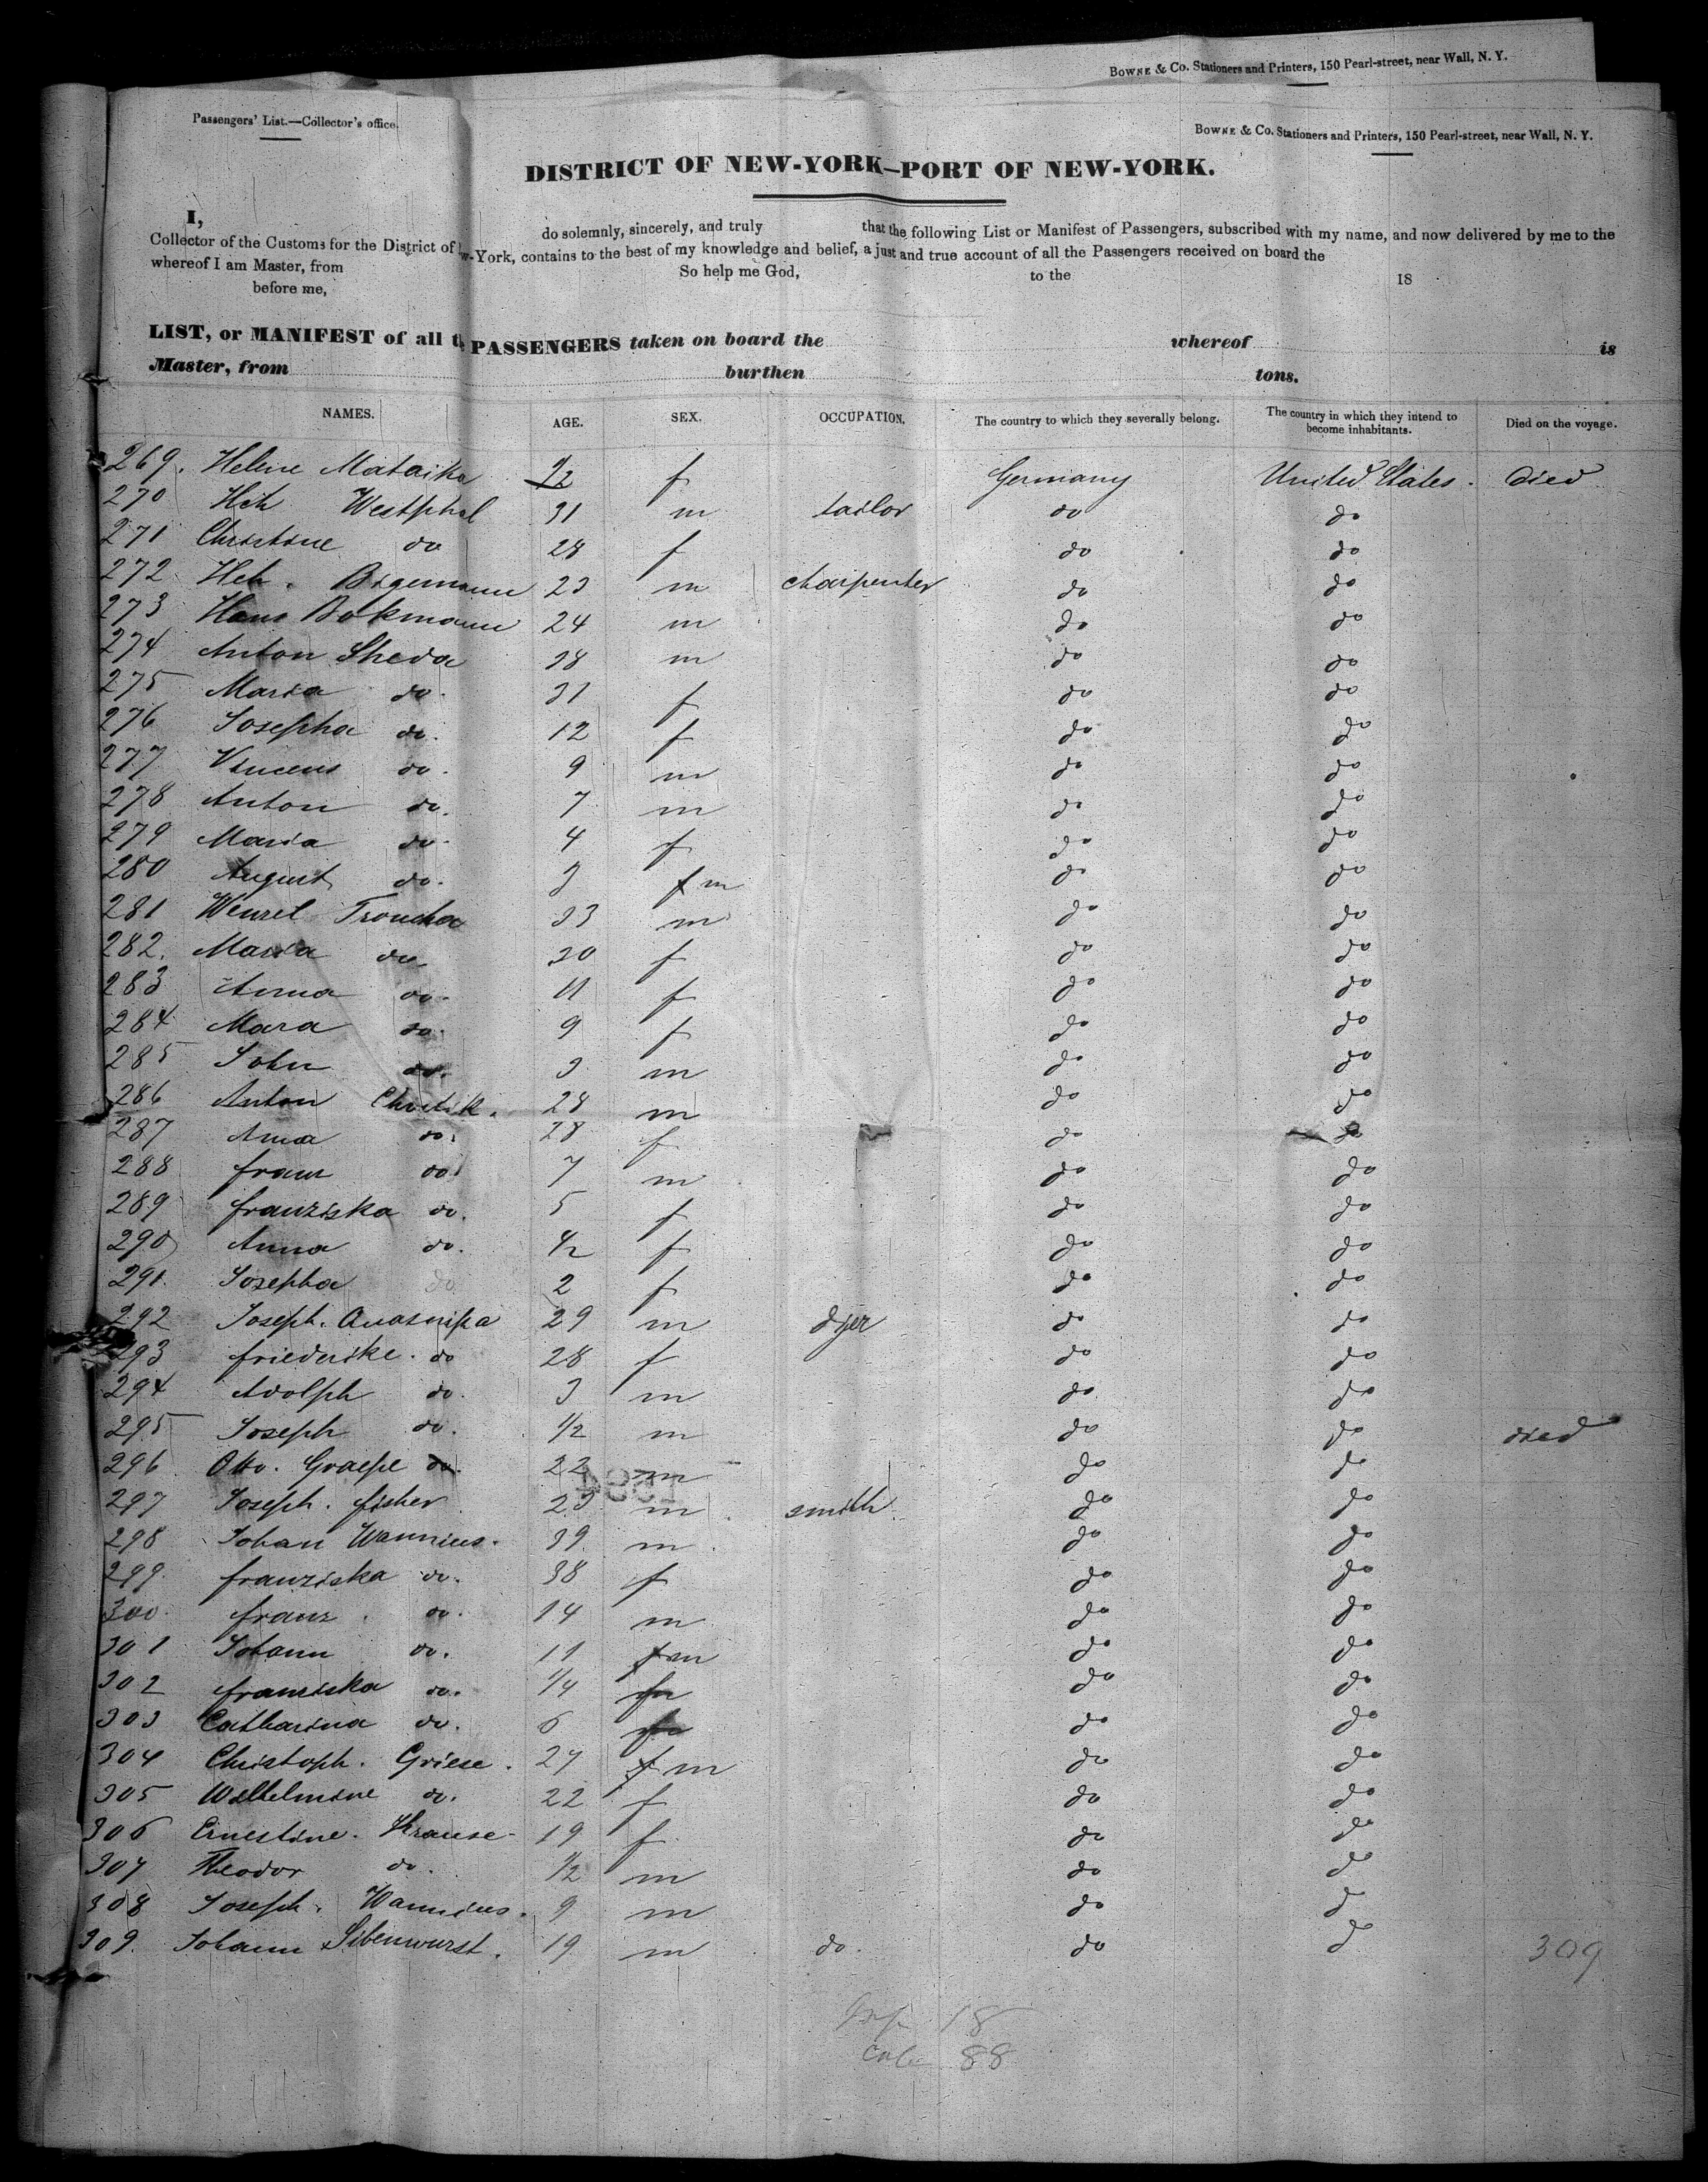 BOWNE & CO. Stationers and Printers, 150 Pearl-street, near Wall, N. Y.
Passengers' List.—Collector's office.
BOWNE & CO. Stationers and Printers, 150 Pearl-street, near Wall, N. Y.
DISTRICT OF NEW-YORK—PORT OF NEW-YORK.
I, do solemnly, sincerely, and truly that the following List or Manifest of Passengers, subscribed with my name, and now delivered by me to the
Collector of the Customs for the District of w-York, contains to the best of my knowledge and belief, a just and true account of all the Passengers received on board the
whereof I am Master, from So help me God, to the 18
before me,
LIST, or MANIFEST of all the PASSENGERS taken on board the whereof is
Master, from burthen tons.
NAMES. AGE. SEX. OCCUPATION. The country to which they severally belong. The country in which they intend to become inhabitants. Died on the voyage.
269. Helene Mataika 1/2 f Germany United States. Died
270 Hch Westphal 31 m tailor do do
271 Christine do 28 f do do
272 Hch. Bigemann 23 m charpenter do do
273 Hans Bokmann 24 m do do
274 Anton Sheda 38 m do do
275 Maria do. 31 f do do
276 Josepha do. 12 f do do
277 Vincens do. 9 m do do
278 Anton do. 7 m do do
279 Maria do. 4 f do do
280 August do. 3 f m do do
281 Wenzel Troucha 33 m do do
282. Maria do 30 f do do
283 Anna do. 11 f do do
284 Mara do. 9 f do do
285 John do. 3 m do do
286 Anton 28 m do do
287 Anna do. 28 f do do
288 franz do. 7 m do do
289 franziska do. 5 f do do
290 Anna do. f do do
291. Josepha do 2 f do do
292 Joseph. 29 m dyer do do
293 friederike. do 28 f do do
294 Adolph do. 3 m do do
295 Joseph do. 1/2 m do do died
296 Otto. Graepe do. 22 m do do
297 Joseph. fisher 23 m smith do do
298 Johan Wannius. 39 m do do
299 franziska do. 38 f do do
300. franz. do. 14 m do do
301 Johann do. 11 f m do do
302 franziska do. 1/4 do do
303 Catharina do. 6 do do
304 Christoph. Griese. 27 f m do do
305 Wilhelmine do. 22 f do do
306 Ernestine. Krause 19 f do do
307 Theodor do. 1/2 m do do
308 Joseph. Wannius. 9 m do d
309. Johann Sibenwurst. 19 m do. do d 309
18
88